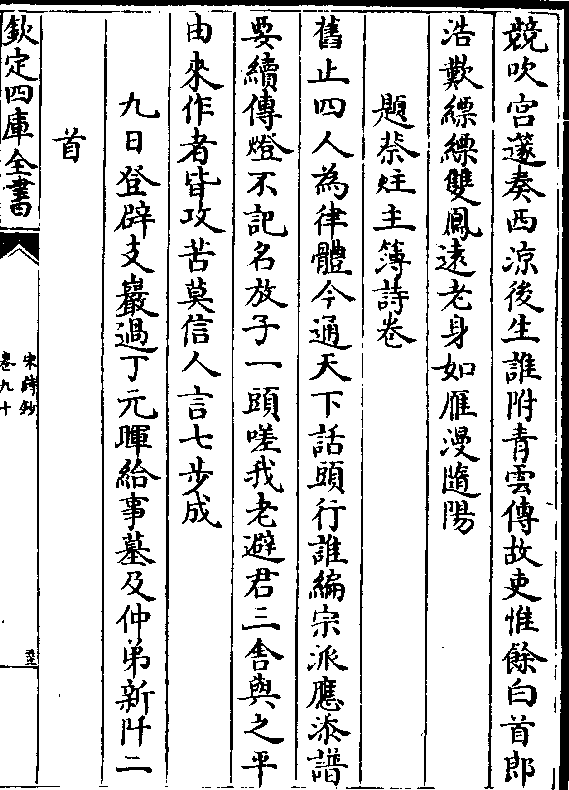 競吹宫邃奏西涼後生誰附青雲傳故吏惟餘白首郎
浩歎縹縹雙鳳遠老身如雁漫隨陽
題蔡炷主簿詩卷
舊止四人為律體今通天下話頭行誰編宗派應添譜
要續傳燈不記名放子一頭嗟我老避君三舎與之平
由來作者皆攻苦莫信人言七步成
九日登辟支巖過丁元暉給事墓及仲弟新阡二
首
欽定四庫全書
宋詩鈔
卷九十